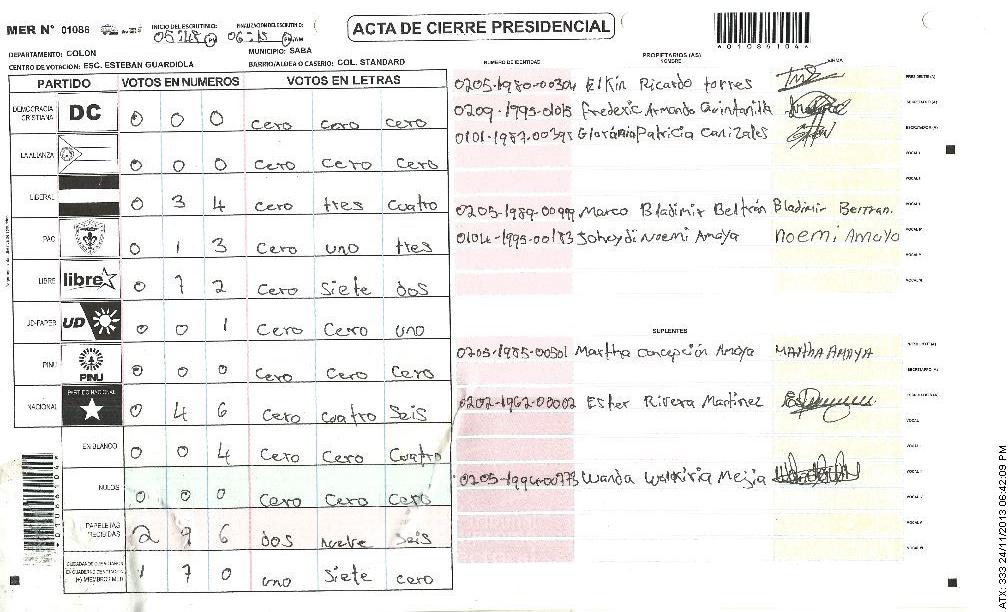 MER N° 01086
INICIO DEL ESCRUTINIO: 05:48 PM
FINALIZACION DEL ESCRUTINIO: 06:15 PM/AM
ACTA DE CIERRE PRESIDENCIAL
*01086104*
DEPARTAMENTO: COLON
MUNICIPIO: SABA
CENTRO DE VOTACION: ESC. ESTEBAN GUARDIOLA
BARRIO/ALDEA O CASERIO: COL. STANDARD
PARTIDO VOTOS EN NUMEROS VOTOS EN LETRAS
DEMOCRACIA CRISTIANA DC 0 0 0 cero cero cero
LA ALIANZA 0 0 0 cero cero cero
LIBERAL 0 3 4 cero tres cuatro
PAC 0 1 3 cero uno tres
LIBRE libre 0 7 2 cero siete dos
UD-FAPER UD 0 0 1 cero cero uno
PINU PINU 0 0 0 cero cero cero
NACIONAL PARTIDO NACIONAL 0 4 6 cero cuatro seis
EN BLANCO 0 0 4 cero cero cuatro
NULOS 0 0 0 cero cero cero
PAPELETAS RECIBIDAS 2 9 6 dos nueve seis
(+) MIEMBROS MER 1 7 0 uno siete cero
NUMERO DE IDENTIDAD
PROPIETARIOS (AS)
NOMBRE
FIRMA
0205-1980-00304 Elkin Ricardo torres PRESIDENTE(A)
0209-1995-01015 Frederic Armando Quintanilla SECRETARIO(A)
Patricia Canizales ESCRUTADOR(A)
VOCAL I
VOCAL II
0205-1989-00999 Marco Bladimir Beltrán Bladimir Bertran.
Noemi Amaya noemi Amaya
SUPLENTES
0205-1985-00501 Martha Concepción Amaya MARTHA AMAYA
0202-1962-00002 Ester Rivera Martinez
Wanda Walkiria Mejia
*01086104*
ATX: 333 24/11/2013 06:42:09 PM